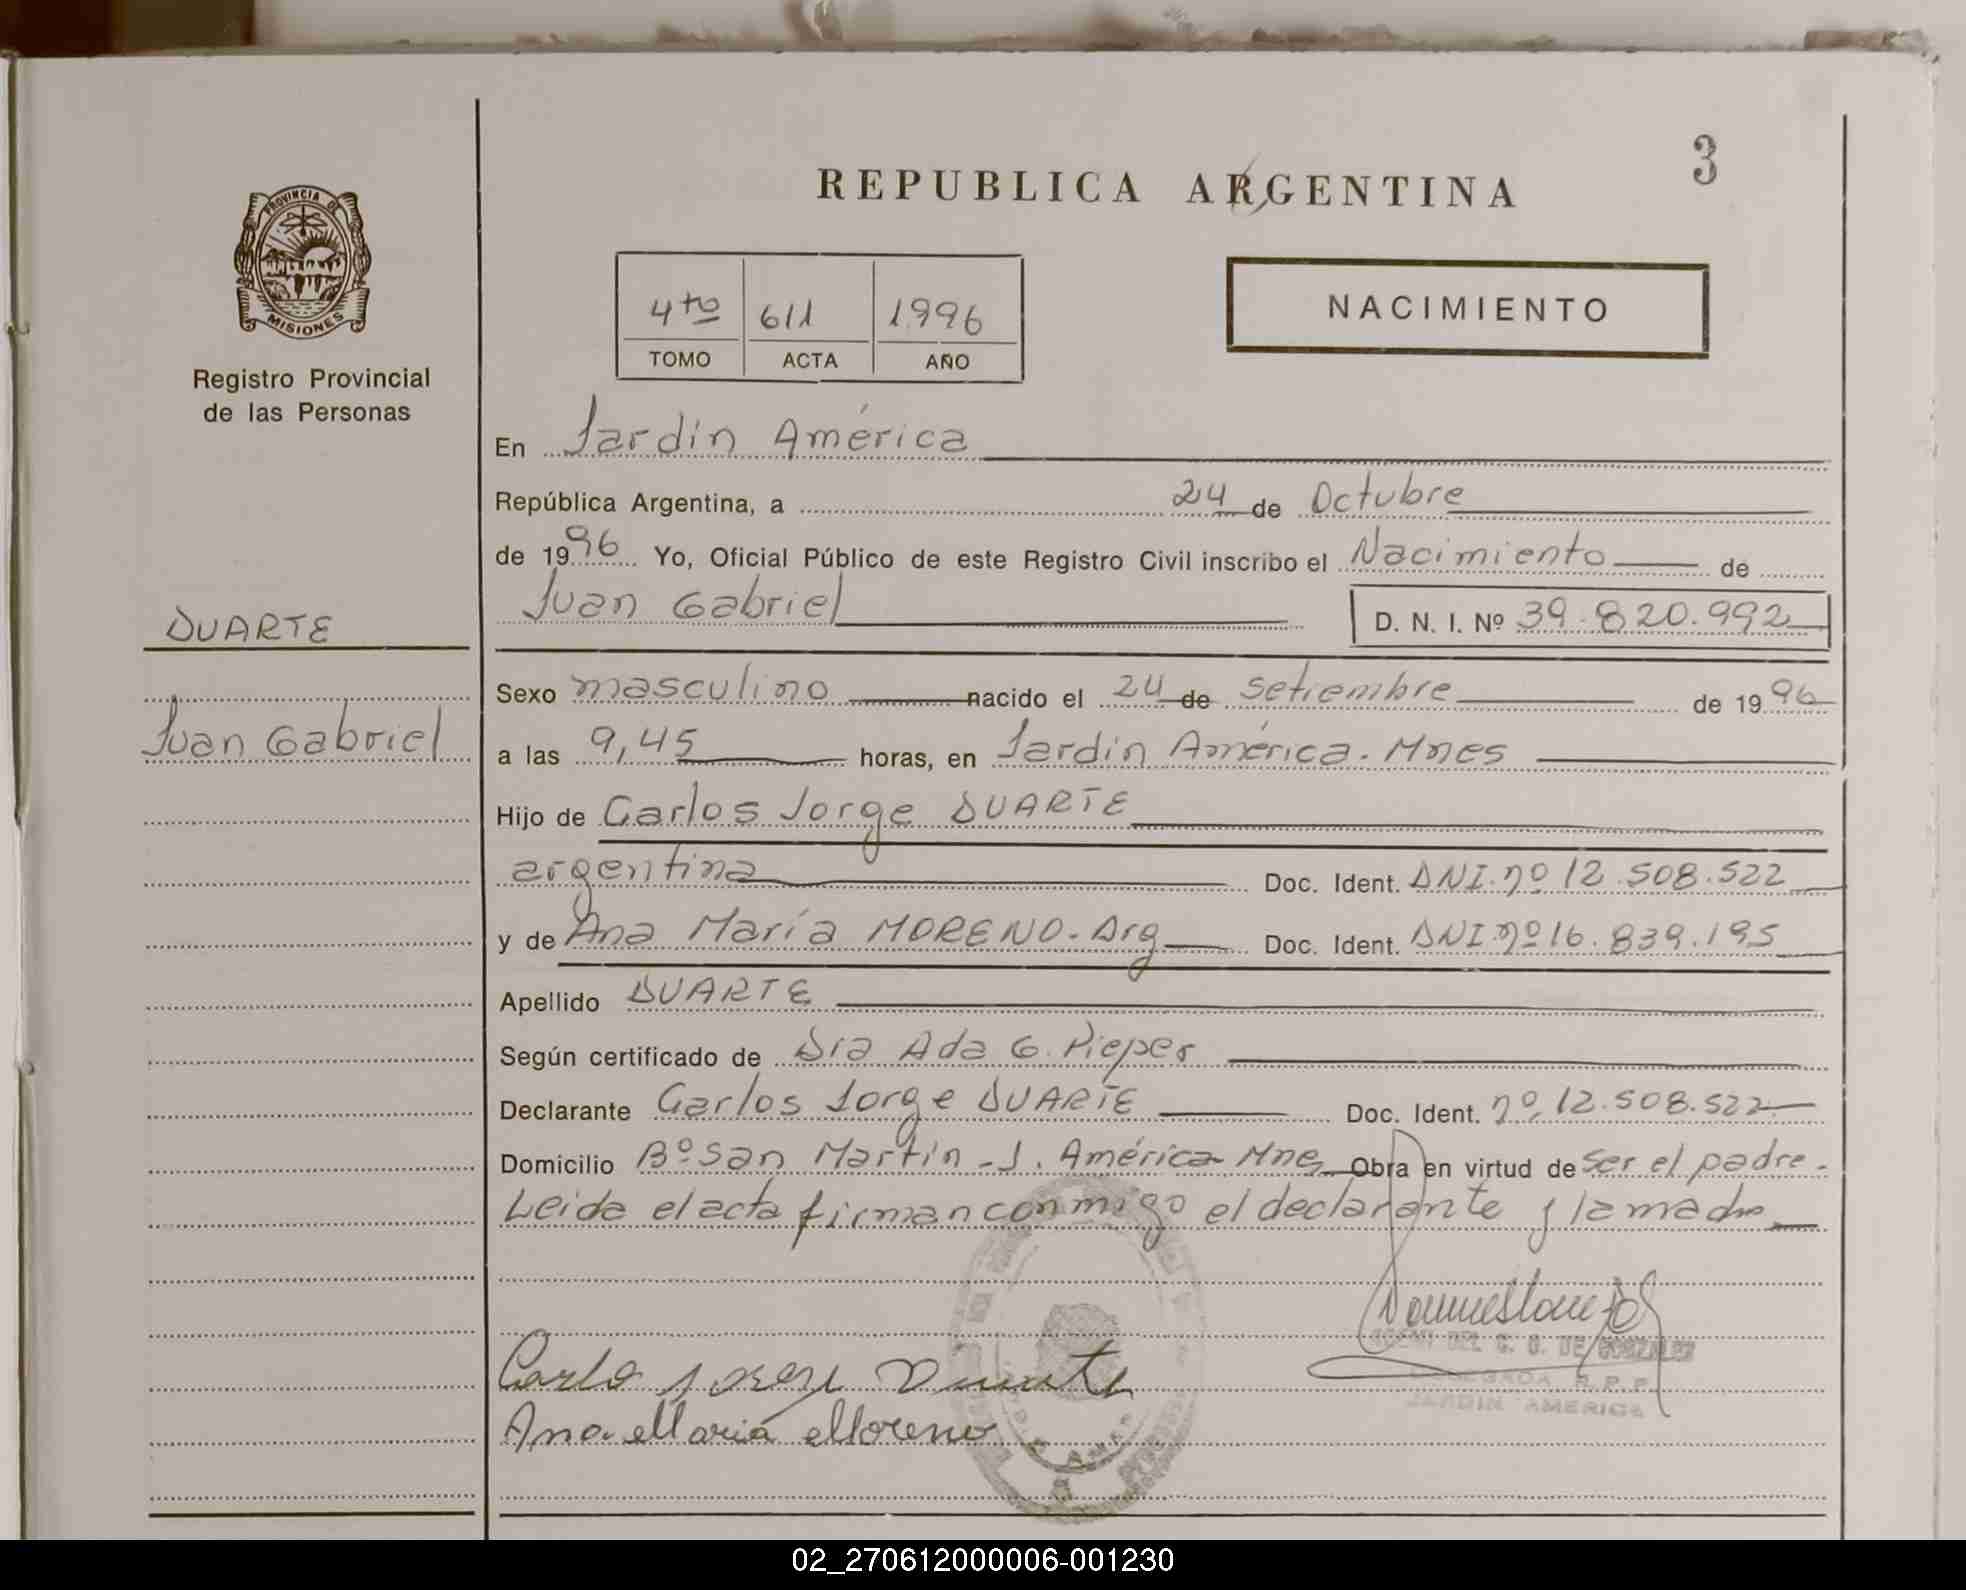 3
REPUBLICA ARGENTINA
PROVINCIA DE
MISIONES
Registro Provincial
de las Personas
4to 611 1996
TOMO ACTA AÑO
NACIMIENTO
En Jardín América
República Argentina, a 24 de Octubre
de 1996 Yo, Oficial Público de este Registro Civil inscribo el Nacimiento de
Juan Gabriel D. N. I. Nº 39.820.992
DUARTE
Juan Gabriel
Sexo masculino nacido el 24 de Setiembre de 1996
a las 9,45 horas, en Jardín América. Mnes
Hijo de Carlos Jorge DUARTE
argentina Doc. Ident. DNI.nº 12.508.522
y de Ana María MORENO-Arg Doc. Ident. DNI nº 16.839.195
Apellido DUARTE
Según certificado de Dra Ada G. Pieper
Declarante Carlos Jorge DUARTE Doc. Ident. nº 12.508.522
Domicilio Bº San Martín - J. América Mnes Obra en virtud de ser el padre.
Leida el acta firman conmigo el declarante y la madre
Carlo Jorge Duarte
DEL C. G. DE GONZALEZ
R.P.P.
JARDIN AMERICA
Ana Maria Moreno
02_270612000006-001230